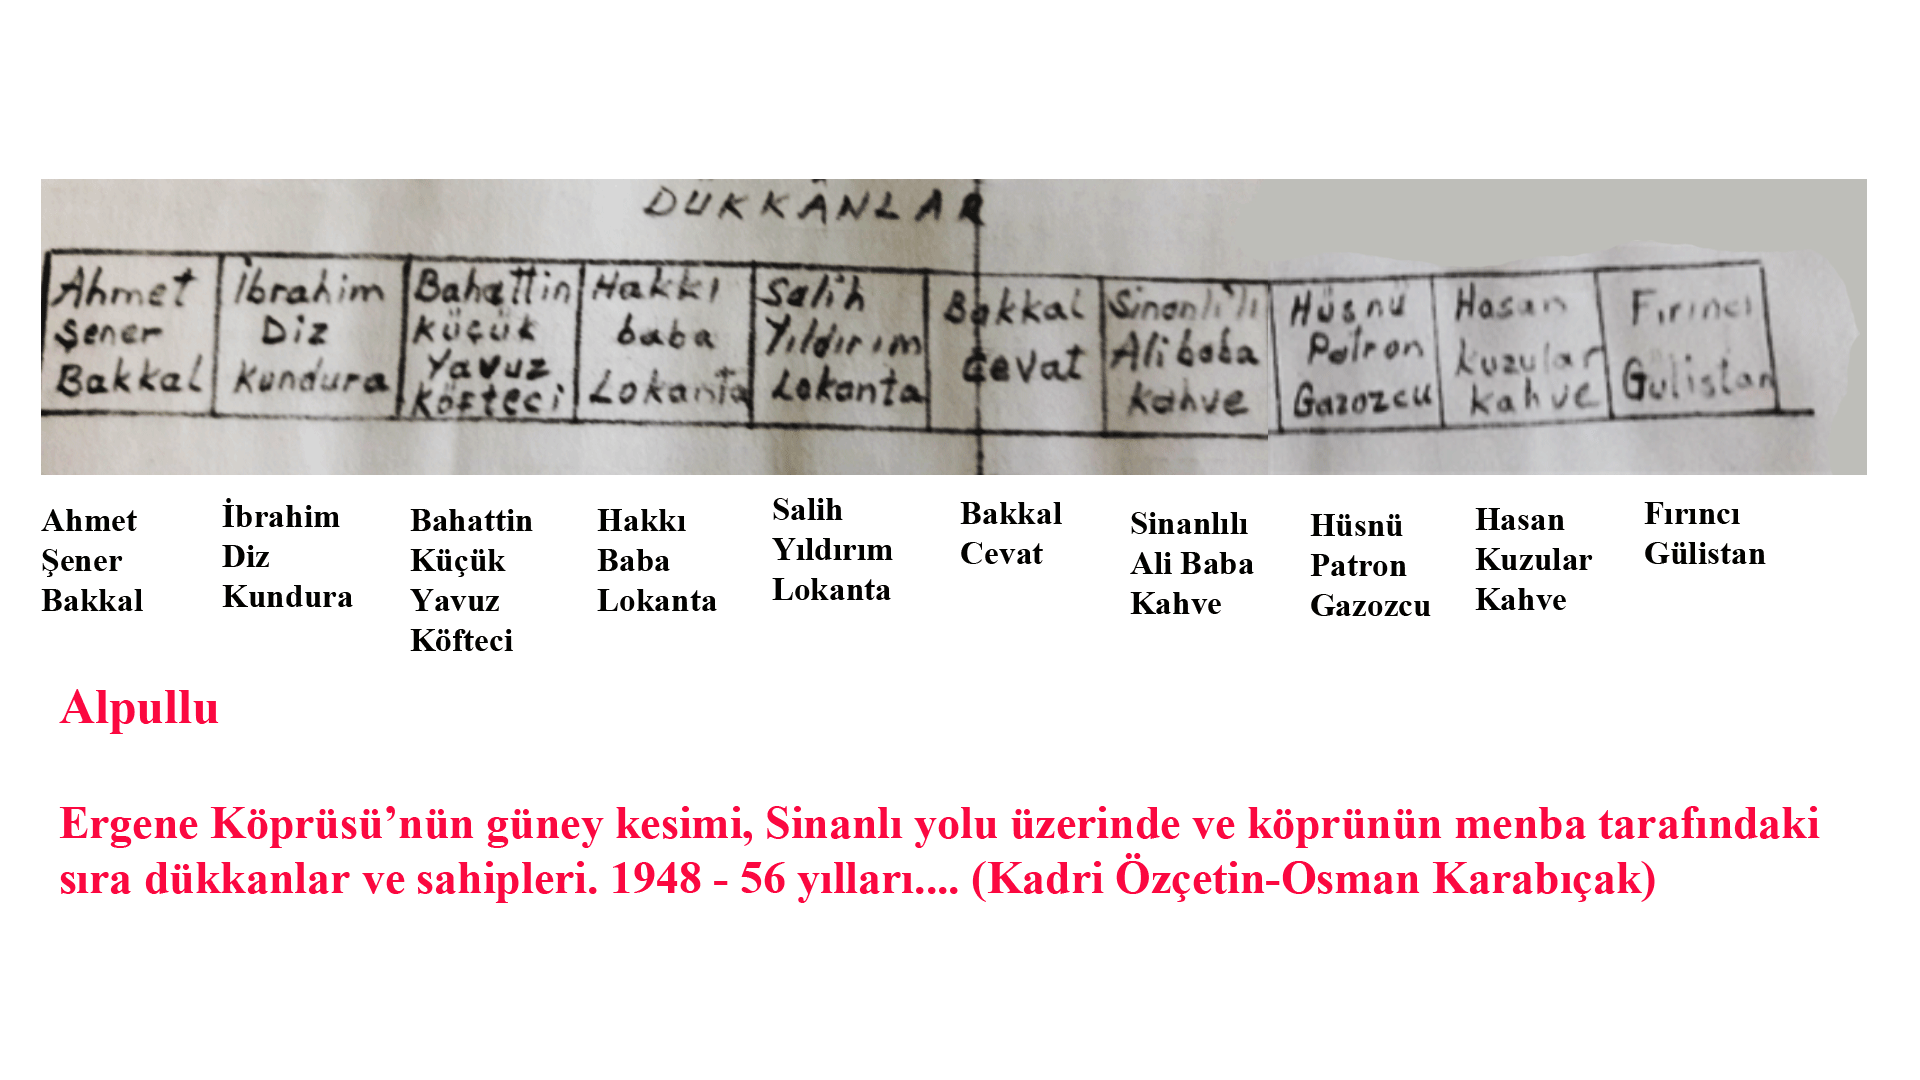 DÜKKÂNLAR
Ahmet
Şener
Bakkal
İbrahim
Diz
Kundura
Bahattin
Küçük
Yavuz
Köfteci
Hakkı
baba
Lokanta
Salih
Yıldırım
Lokanta
Bakkal
Cevat
Sinanlı'lı
Ali baba
Kahve
Hüsnü
Patron
Gazozcu
Hasan
kuzular
kahve
Fırıncı
Gülistan
Ahmet
Şener
Bakkal
İbrahim
Diz
Kundura
Bahattin
Küçük
Yavuz
Köfteci
Hakkı
Baba
Lokanta
Salih
Yıldırım
Lokanta
Bakkal
Cevat
Sinanlılı
Ali Baba
Kahve
Hüsnü
Patron
Gazozcu
Hasan
Kuzular
Kahve
Fırıncı
Gülistan
Alpullu
Ergene Köprüsü’nün güney kesimi, Sinanlı yolu üzerinde ve köprünün menba tarafındaki
sıra dükkanlar ve sahipleri. 1948 - 56 yılları.... (Kadri Özçetin-Osman Karabıçak)